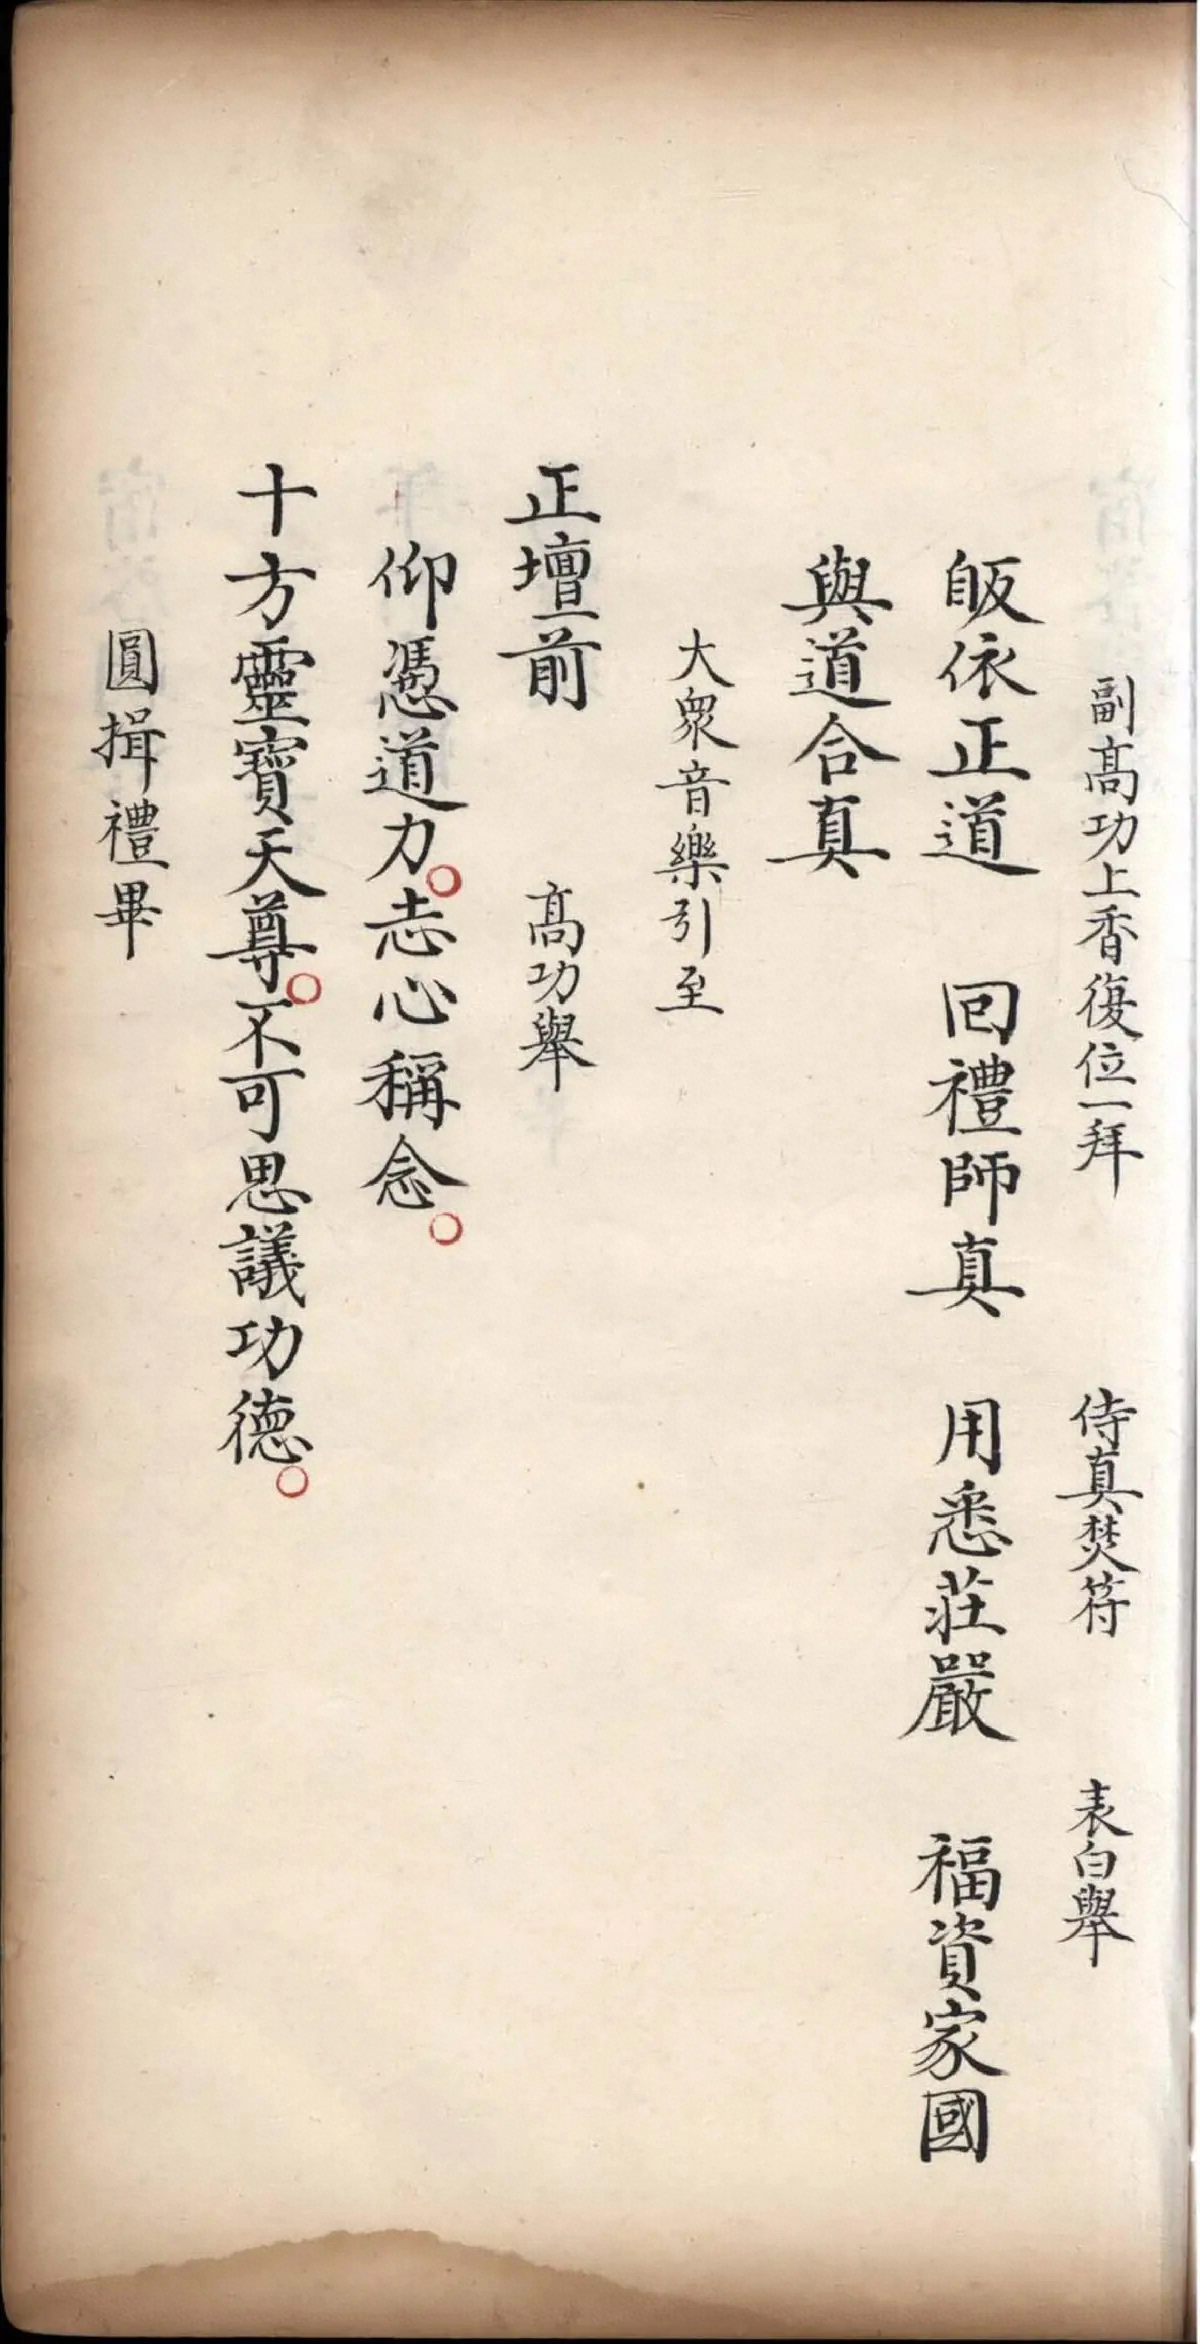 副高功上香復位一拜　侍真焚符　表白舉
皈依正道　回禮師真　用悉莊嚴　福資家國
與道合真
大衆音樂引至
正壇前　高功舉
仰憑道力○志心稱念○
十方靈寶天尊○不可思議功德○
圓揖禮畢